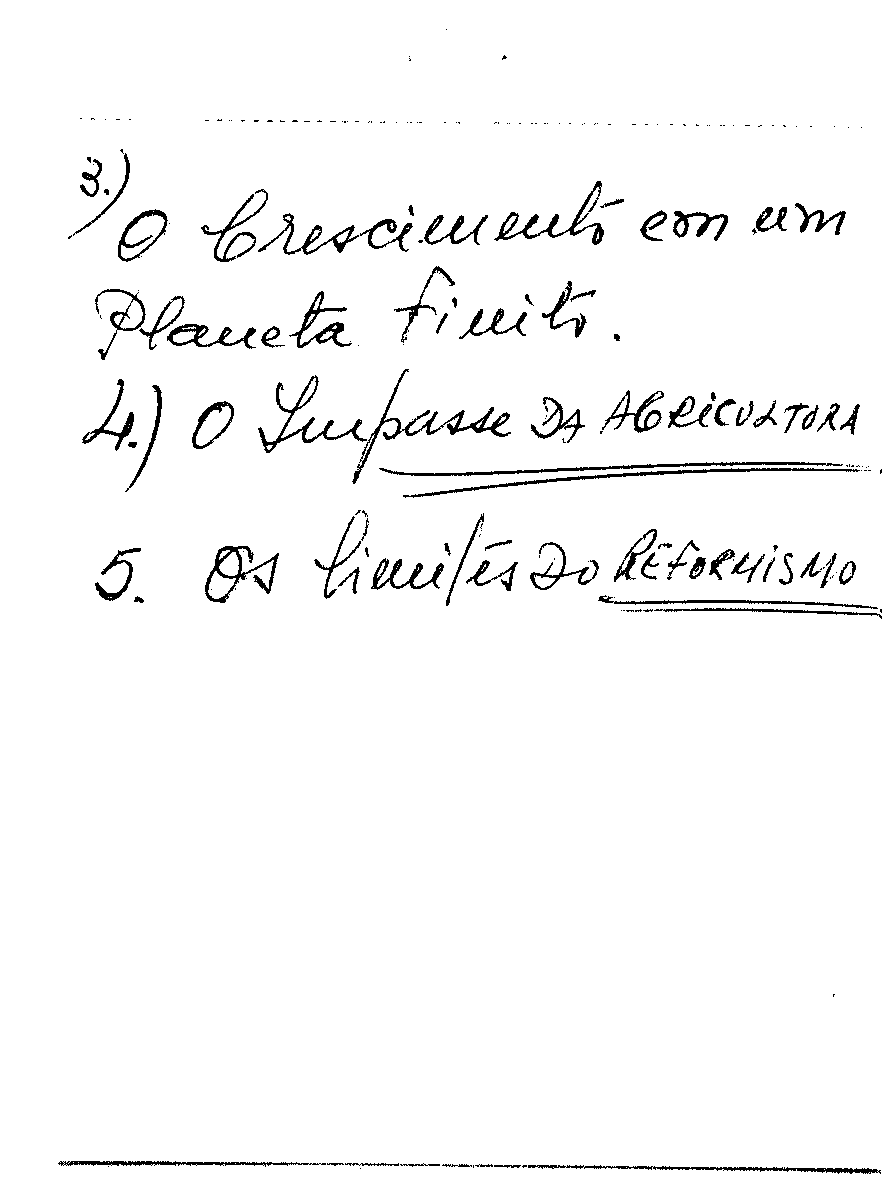 3.)
O Crescimento em um
Planeta Finito.
4.) O Impasse DA AGRICULTURA
5. Os limites DO REFORMISMO